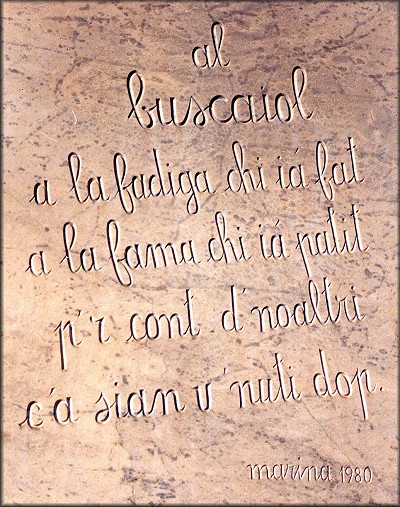 al
buscaiol
a la fadiga chi iá fat
a la fama chi iá patit
p'r cont d'noaltri
c'a sian v'nuti dop.
marina 1980